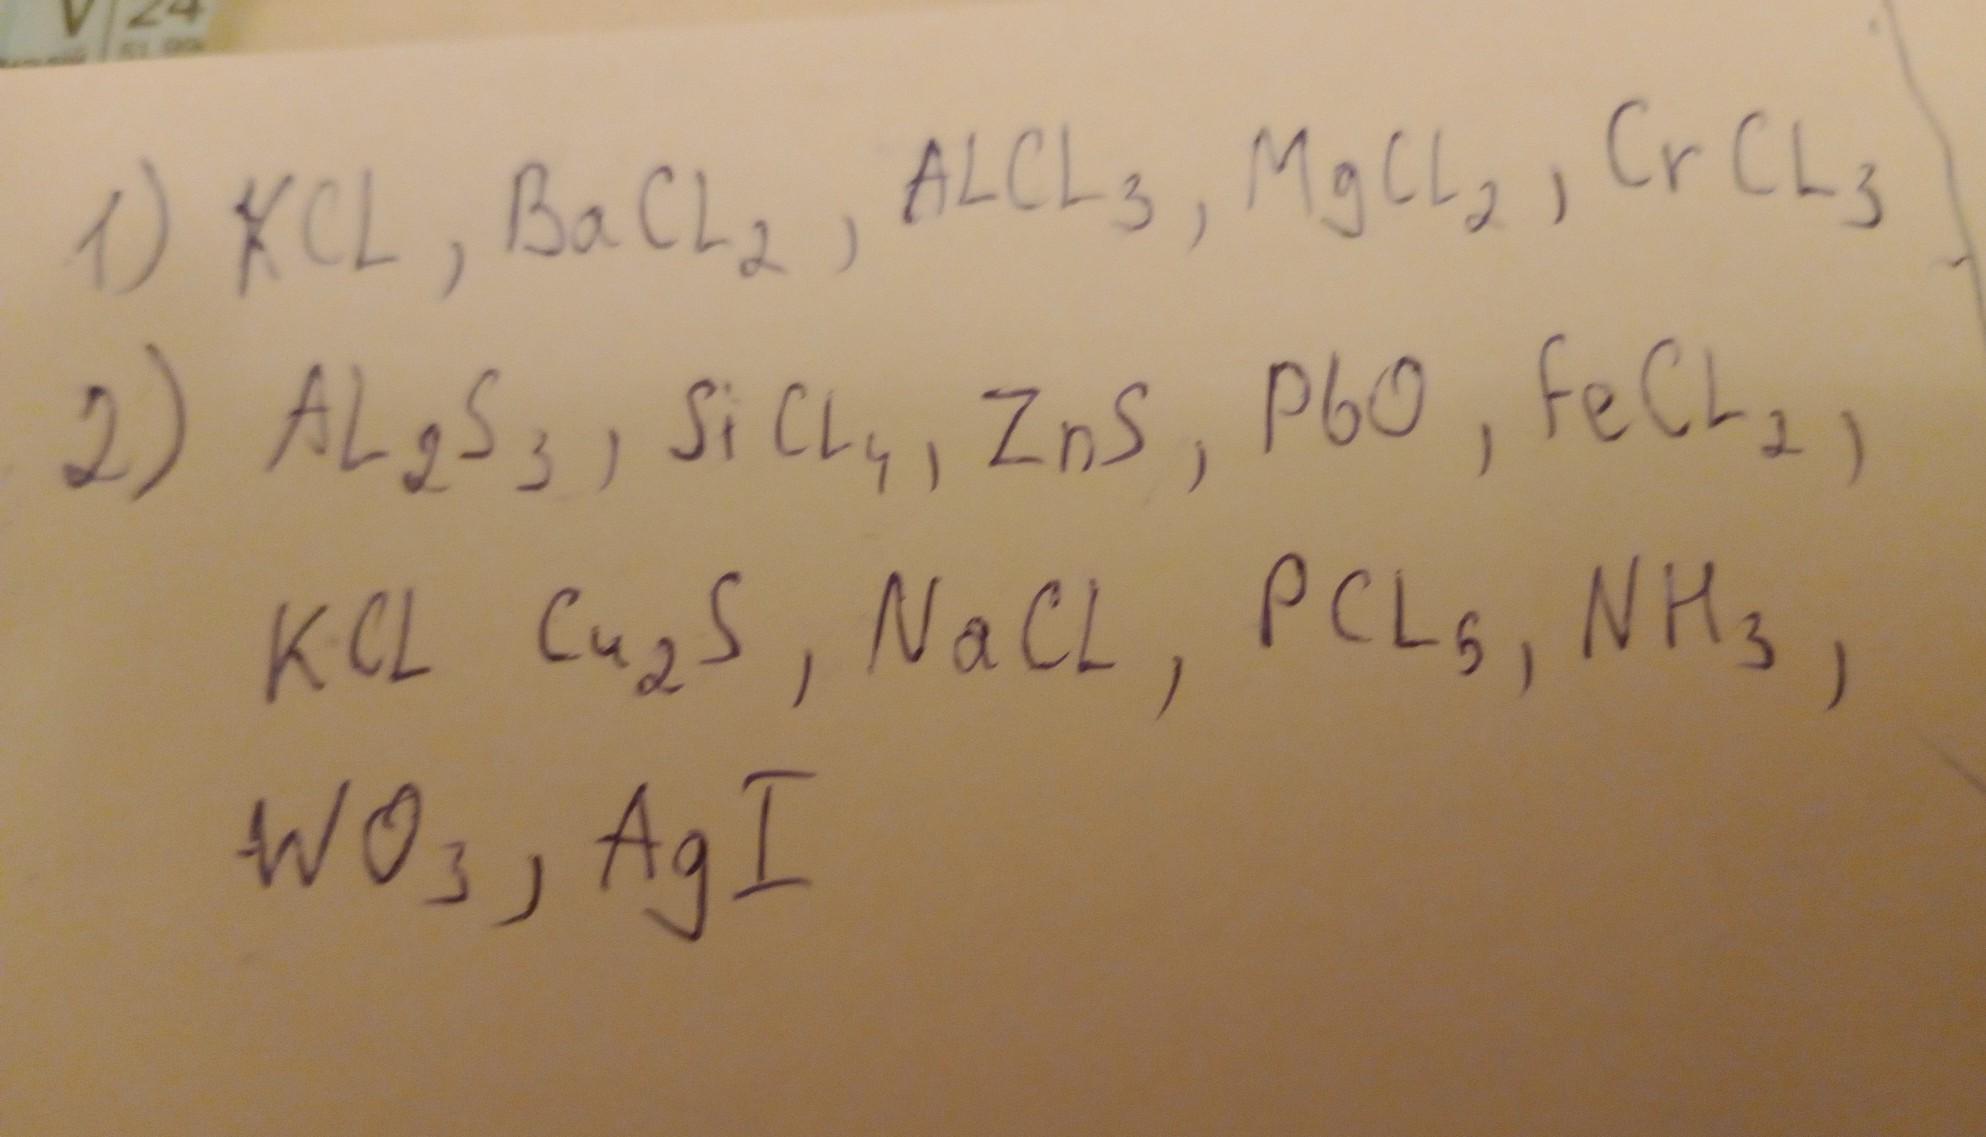 V 24
1) KCL, BaCL₂, ALCL₃, MgCL₂, CrCL₃
2) AL₂S₃, SiCL₄, ZnS, PbO, FeCL₂,
KCL Cu₂S, NaCL, PCL₅, NH₃,
WO₃, AgI